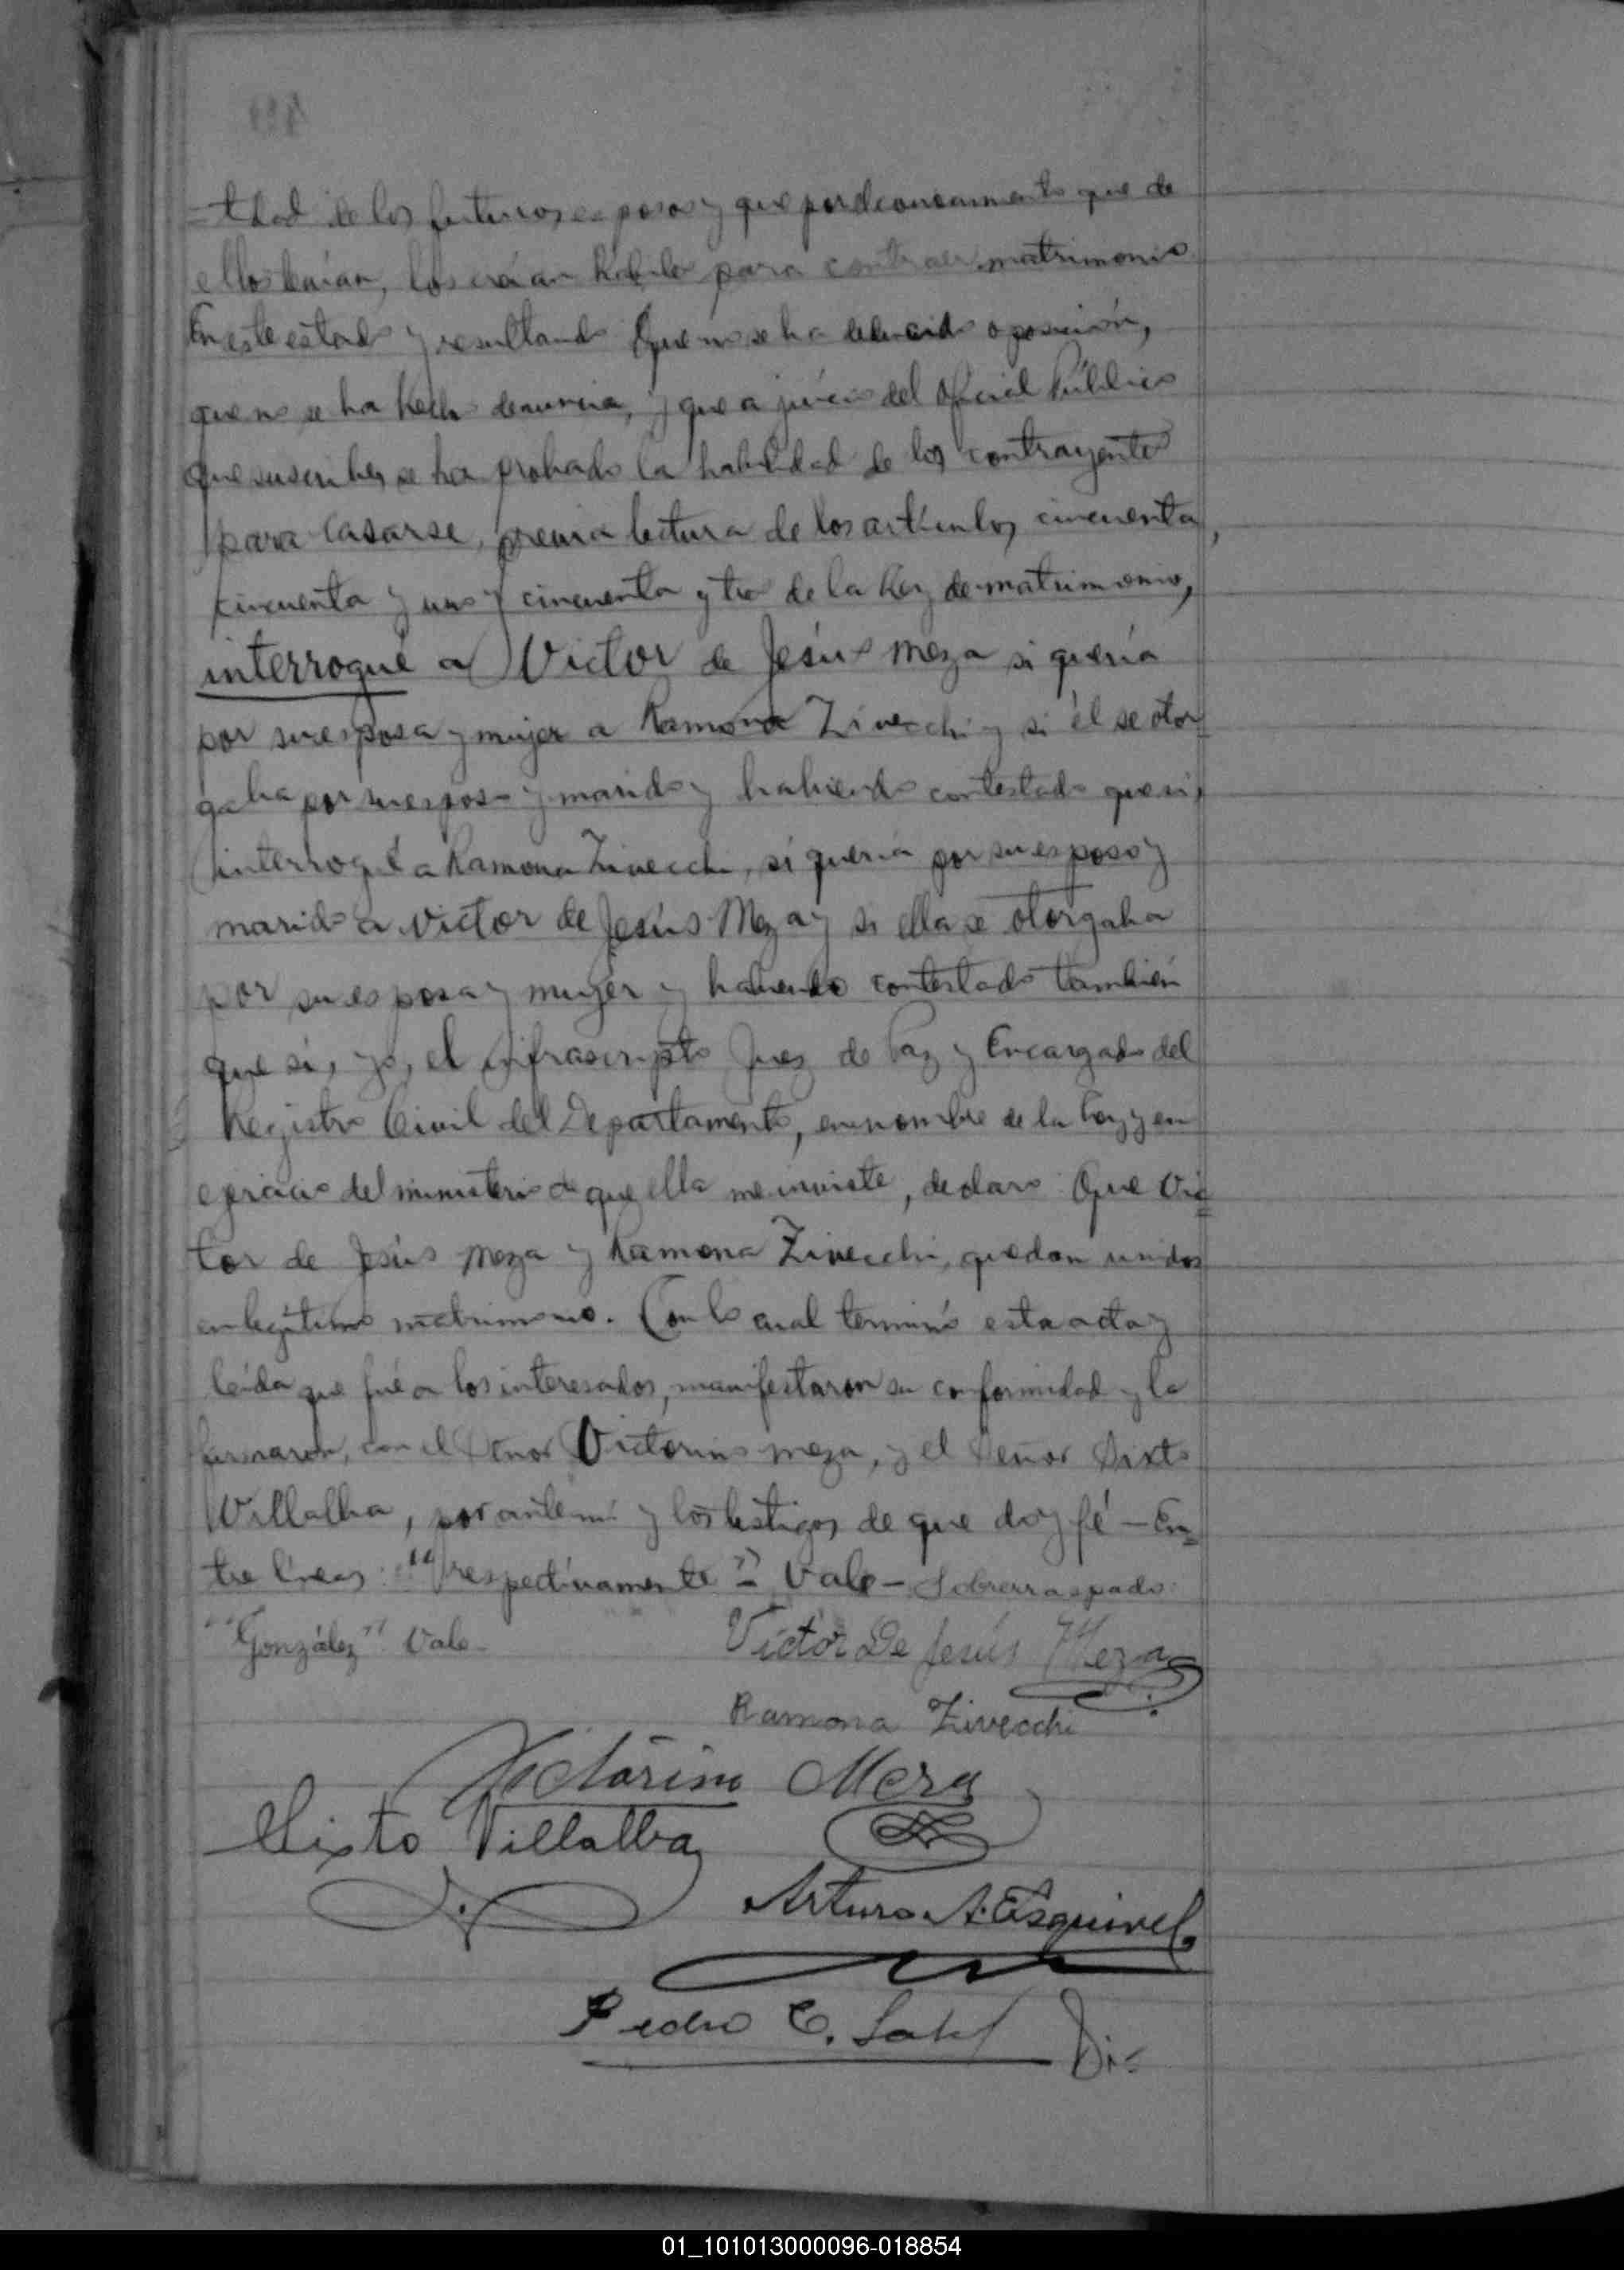 =tdad de los futuros esposos y que por el conocimiento que de
ellos tenían, los creían hábiles para contraer matrimonio.
En este estado y resultando Que no se ha deducido oposición,
que no se ha hecho denuncia, y que a juicio del oficial Público
que suscribe, se ha probado la habilidad de los contrayentes
para casarse, previa lectura de los artículos cincuenta,
cincuenta y uno y cincuenta y tres de la Ley de matrimonio,
interrogué a Victor de Jesús Meza si quería
por su esposa y mujer a Ramona Zivecchi y si él se otor=
gaba por su esposo y marido y habiendo contestado que sí,
interrogué a Ramona Zivecchi, si quería por su esposo y
marido a Victor de Jesús Meza y si ella se otorgaba
por su esposa y mujer y habiendo contestado también
que sí, yo, el infrascripto Juez de Paz y Encargado del
Registro Civil del Departamento, en nombre de la Ley y en
ejercicio del ministerio de que ella me inviste, declaro: Que Vic=
tor de Jesús Meza y Ramona Zivecchi, quedan unidos
en legítimo matrimonio. Con lo cual terminó esta acta y
leída que fué a los interesados, manifestaron su conformidad y la
firmaron, con el Señor Victorino Meza, y el Señor Sixto
Villalba, por ante mí y los testigos de que doy fé — En=
tre líneas: "respectivamente" = Vale — Sobrerraspado:
"González" Vale —
Victor De Jesús Meza
Ramona Zivecchi
Victorino Meza
Sixto Villalba
Arturo A. Esquivel
Pedro C.
01_101013000096-018854